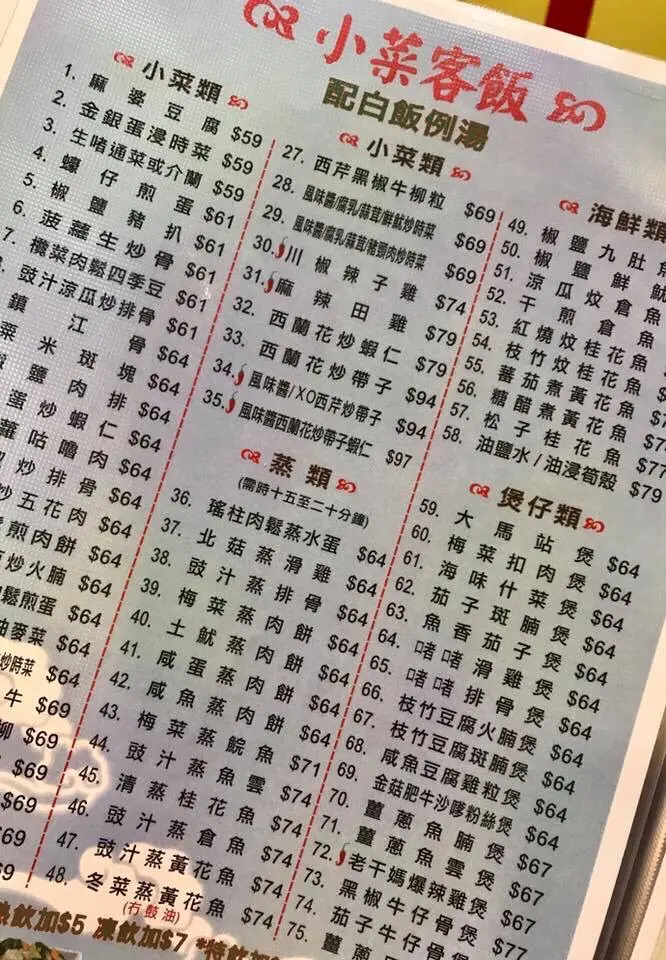 小菜客飯
配白飯例湯
小菜類
1. 麻婆豆腐 $59
2. 金銀蛋浸時菜 $59
3. 生啫通菜或介蘭 $59
4. 蠔仔煎蛋 $61
5. 椒鹽豬扒 $61
6. 菠蘿生炒骨 $61
7. 欖菜肉鬆四季豆 $61
豉汁涼瓜炒排骨 $61
鎮江骨 $64
菜米斑塊 $64
鹽肉排 $64
蛋炒蝦仁 $64
蘿咕嚕肉 $64
炒排骨 $64
炒五花肉 $64
煎肉餅 $64
炒火腩 $64
鬆煎蛋 $64
油麥菜 $64
炒時菜 $64
牛 $69
柳 $69
$69
$69
$69
小菜類
27. 西芹黑椒牛柳粒 $69
28. 風味醬/腐乳/蒜茸/鮮魷炒時菜 $69
29. 風味醬/腐乳/蒜茸/豬頸肉炒時菜 $69
30. 川椒辣子雞 $74
31. 麻辣田雞 $79
32. 西蘭花炒蝦仁 $79
33. 西蘭花炒帶子 $94
34. 風味醬/XO西芹炒帶子 $94
35. 風味醬西蘭花炒帶子蝦仁 $97
蒸類
(需時十五至二十分鐘)
36. 瑤柱肉鬆蒸水蛋 $64
37. 北菇蒸滑雞 $64
38. 豉汁蒸排骨 $64
39. 梅菜蒸肉餅 $64
40. 土魷蒸肉餅 $64
41. 咸蛋蒸肉餅 $64
42. 咸魚蒸肉餅 $64
43. 梅菜蒸鯇魚 $71
44. 豉汁蒸魚雲 $74
45. 清蒸桂花魚 $74
46. 豉汁蒸倉魚 $74
47. 豉汁蒸黃花魚 $74
48. 冬菜蒸黃花魚 $74
(冇鼓油)
海鮮類
49. 椒鹽九肚魚
50. 椒鹽鮮魷
51. 涼瓜炆倉魚
52. 干煎倉魚
53. 紅燒炆桂花魚
54. 枝竹炆桂花魚
55. 蕃茄煮黃花魚
56. 糖醋煮黃花魚
57. 松子桂花魚 $77
58. 油鹽水/油浸筍殼 $79
煲仔類
59. 大馬站煲 $64
60. 梅菜扣肉煲 $64
61. 海味什菜煲 $64
62. 茄子斑腩煲 $64
63. 魚香茄子煲 $64
64. 啫啫滑雞煲 $64
65. 啫啫排骨煲 $64
66. 枝竹豆腐火腩煲 $64
67. 枝竹豆腐斑腩煲 $64
68. 咸魚豆腐雞粒煲 $64
69. 金菇肥牛沙嗲粉絲煲 $64
70. 薑蔥魚腩煲 $67
71. 薑蔥魚雲煲 $67
72. 老干媽爆辣雞煲 $67
73. 黑椒牛仔骨煲 $77
74. 茄子牛仔骨煲
75. 薑蔥
熱飲加$5 凍飲加$7 *特飲加